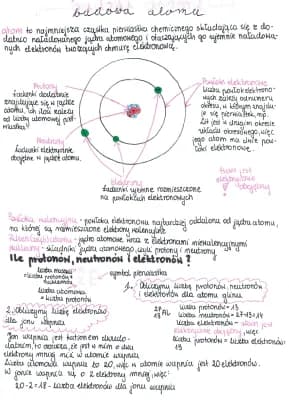 budowa atomu
atom to najmniejsza cząstka pierwiastka chemicznego składająca się z do-
datnio naładowanego jądra atomowego i otaczających go ujemnie naładowa-
nych elektronów tworzących chmurę elektronową.
Protony
Ładunki dodatnie
znajdujące się w jądrze
atomu, ich ilość zależy
od liczby atomowej pier-
wiastka!
Neutrony
Ładunki elektrycznie
obojętne w jądrze atomu.
Powłoki elektronowe
Liczba powłok elektrono-
wych zależy od numeru
okresu, w którym znajdu-
je się pierwiastek, np.
Lit jest w drugim okresie
układu okresowego, więc
jego atom ma dwie powło-
ki elektronowe.
Elektrony
Ładunki ujemne rozmieszczone
na powłokach elektronowych
atom jest
elektrycznie
obojętny!
Powłoka walencyjna - powłoka elektronowa najbardziej oddalona od jądra atomu,
na której są rozmieszczone elektrony walencyjne
- jądro atomowe wraz z elektronami niewalencyjnymi
nukleony - składniki jądra atomowego, czyli protony i neutrony
Ile protonów, neutronów i elektronów?
liczba masowa
= liczba protonów +
neutronów
symbol pierwiastka
liczba atomowa
= liczba protonów
1. Obliczymy liczbę protonów, neutronów
i elektronów dla atomu glinu
27
13 Al
liczba protonów = 13
liczba neutronów = 27-13 = 14
liczba elektronów = atom jest
elektrycznie obojętny, więc
jest ich tyle co protonów
13
2. Obliczymy liczbę elektronów
dla jonu wapnia
Jon wapnia jest kationem dwudo-
datnim, to oznacza, że jest w nim o dwa
elektrony mniej niż w atomie wapnia
Liczba atomowa wapnia to 20, więc w atomie wapnia jest 20 elektronów.
W jonie wapnia są o 2 elektrony mniej, więc:
20-2 = 18 - liczba elektronów dla jonu wapnia